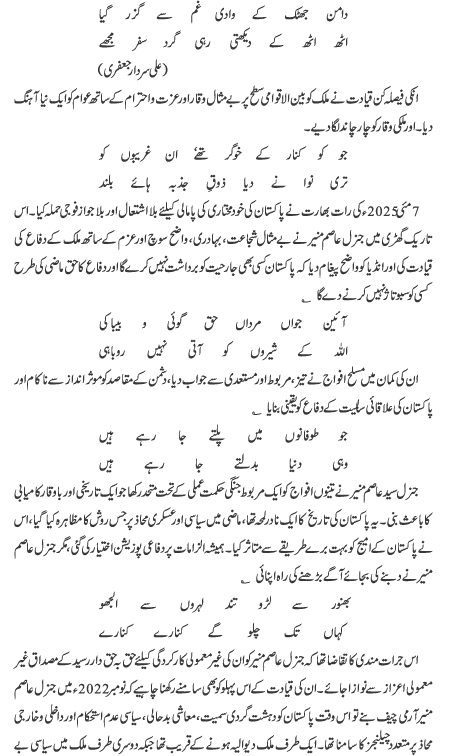 دامن جھٹک کے وادی غم سے گزر گیا
اٹھ اٹھ کے دیکھتی رہی گرد سفر مجھے
(علی سردار جعفری)
انکی فیصلہ کن قیادت نے ملک کو بین الاقوامی سطح پر بے مثال وقار اور عزت و احترام کے ساتھ عوام کو ایک نیا آہنگ
دیا۔ اور ملکی وقار کو چار چاند لگا دیے۔
جو کو کنار کے خوگر تھے ان غریبوں کو
تری نوا نے دیا ذوقِ جذبہ ہائے بلند
7 مئی 2025ء کی رات بھارت نے پاکستان کی خودمختاری کی پامالی کیلئے بلا اشتعال اور بلا جواز فوجی حملہ کیا۔ اس
تاریک گھڑی میں جنرل عاصم منیر نے بے مثال شجاعت، بہادری، واضح سوچ اور عزم کے ساتھ ملک کے دفاع کی
قیادت کی اور انڈیا کو واضح پیغام دیا کہ پاکستان کسی بھی جارحیت کو برداشت نہیں کرے گا اور دفاع کا حق ماضی کی طرح
کسی کو سبوتاژ نہیں کرنے دے گا ؎
آئین جواں مرداں حق گوئی و بیباکی
اللہ کے شیروں کو آتی نہیں روباہی
ان کی کمان میں مسلح افواج نے تیز، مربوط اور مستعدی سے جواب دیا، دشمن کے مقاصد کو موثر انداز سے ناکام اور
پاکستان کی علاقائی سالمیت کے دفاع کو یقینی بنایا ؎
جو طوفانوں میں پلتے جا رہے ہیں
وہی دنیا بدلتے جا رہے ہیں
جنرل سید عاصم منیر نے تینوں افواج کو ایک مربوط جنگی حکمت عملی کے تحت متحد رکھا جو ایک تاریخی اور باوقار کامیابی
کا باعث بنی۔ یہ پاکستان کی تاریخ کا ایک نادر لمحہ تھا، ماضی میں سیاسی اور عسکری محاذ پر جس روش کا مظاہرہ کیا گیا، اس
نے پاکستان کے امیج کو بہت برے طریقے سے متاثر کیا۔ ہمیشہ الزامات پر دفاعی پوزیشن اختیار کی گئی، مگر جنرل عاصم
منیر نے دبنے کی بجائے آگے بڑھنے کی راہ اپنائی ؎
بھنور سے لڑو تند لہروں سے الجھو
کہاں تک چلو گے کنارے کنارے
اس جرات مندی کا تقاضا تھا کہ جنرل عاصم منیر کو ان کی غیر معمولی کارکردگی کیلئے حق بہ حق دار رسید کے مصداق غیر
معمولی اعزاز سے نوازا جائے۔ ان کی قیادت کے اس پہلو کو بھی سامنے رکھنا چاہیے کہ نومبر 2022ء میں جنرل عاصم
منیر آرمی چیف بنے تو اس وقت پاکستان کو دہشت گردی سمیت، معاشی بدحالی، سیاسی عدم استحکام اور داخلی و خارجی
محاذ پر متعدد چیلنجز کا سامنا تھا۔ ایک طرف ملک دیوالیہ ہونے کے قریب تھا جبکہ دوسری طرف ملک میں سیاسی بے